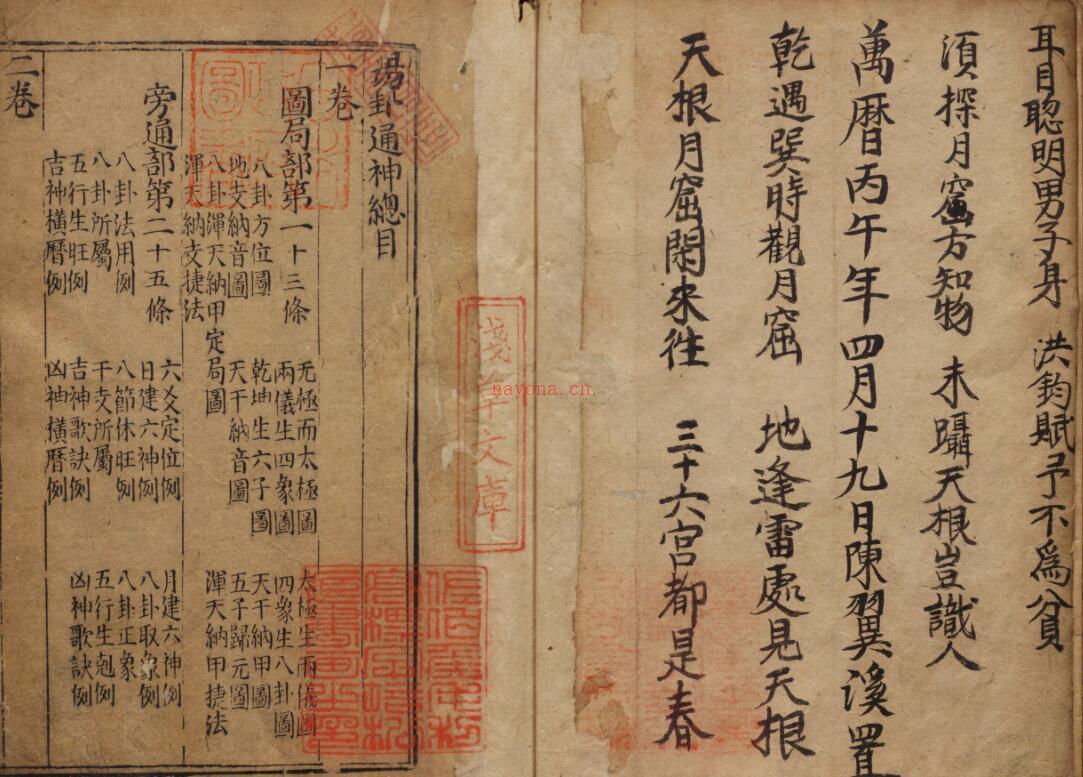 耳目聦明男子身 洪鈞賦予不爲貧
須探月窟方知物 未躡天根豈識人
萬曆丙午年四月十九日陳翼溪置
乾遇巽時觀月窟 地逢雷處見天根
天根月窟閑來徃 三十六宮都是春
淺草文庫
nayona.cn
卦通神總目
一卷
圖局部第一十三條
无極而太極圖 太極生兩儀圖
兩儀生四象圖 四象生八卦圖
八卦方位圖 乾坤生六子圖 天干納甲圖
地支納音圖 天干納音圖 五子歸元圖
八卦渾天納甲定局圖 渾天納甲捷法
渾天納支捷法
旁通部第二十五條
六爻定位例 月建六神例
八卦法用例 日建六神例 八卦取象例
八卦所屬 八節休旺例 八卦正象
五行生旺例 干支所屬 五行生剋例
吉神橫曆例 吉神歌訣例 凶神歌訣例
凶神橫曆例
二卷